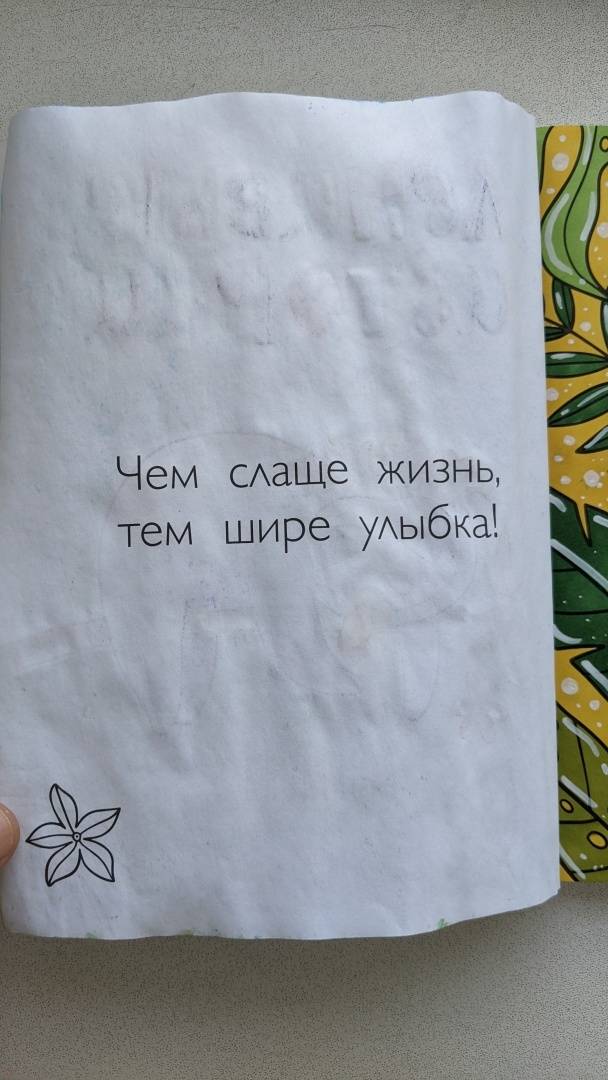 Чем слаще жизнь,
тем шире улыбка!